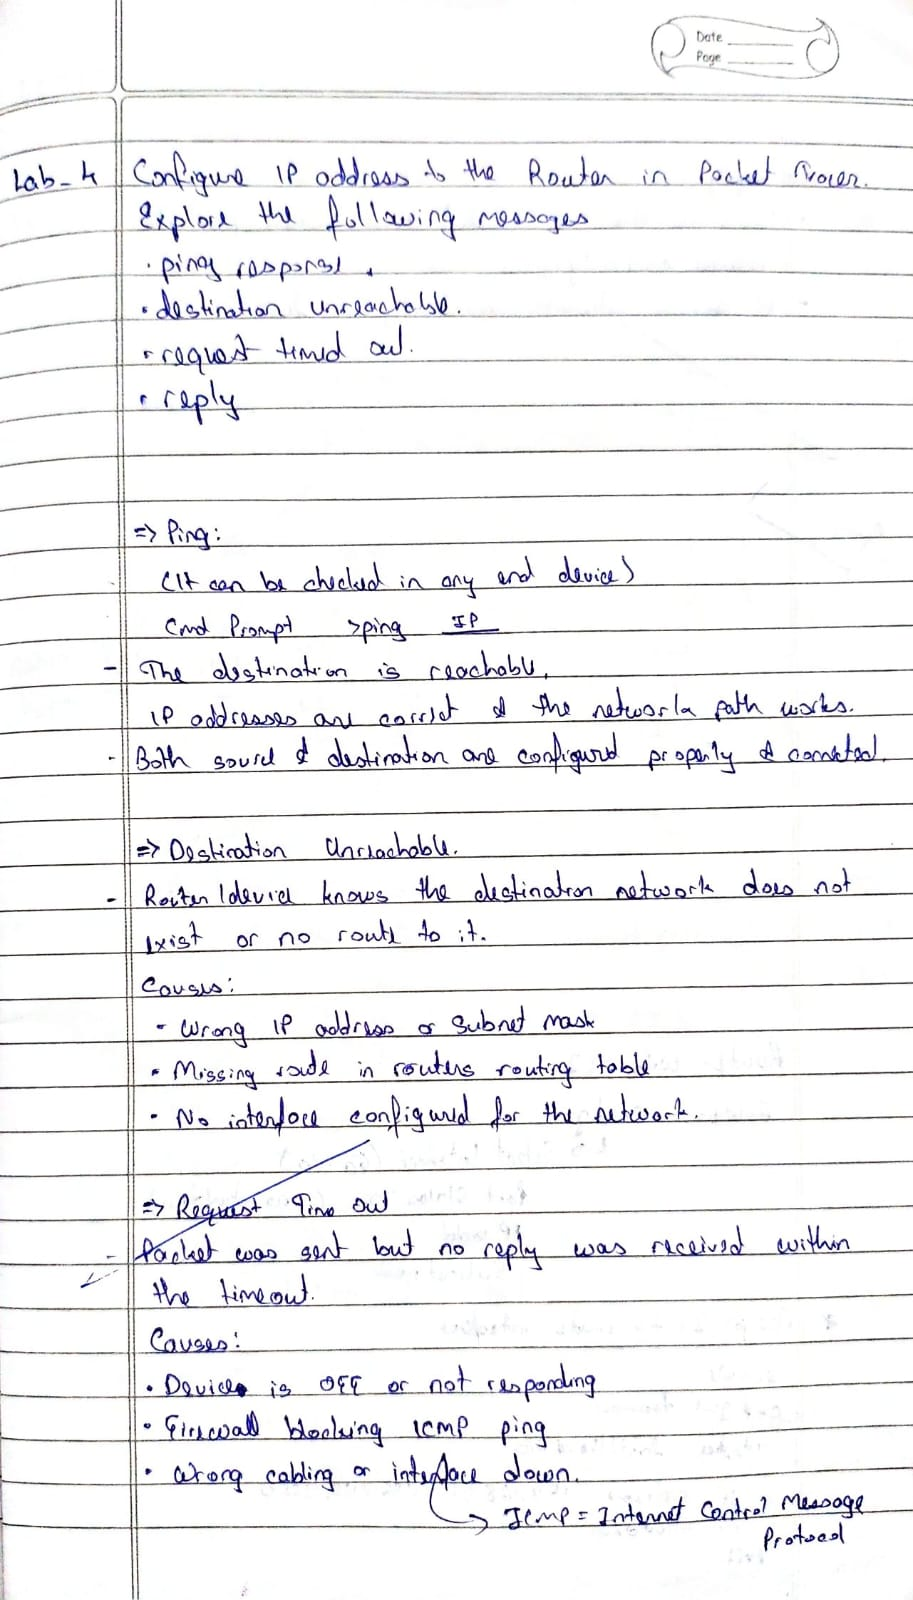 Date
Page
Lab-4 Configure IP address to the Router in Packet Tracer.
Explore the following messages
· ping responses.
· destination unreachable.
· request timed out.
· reply
=> Ping:
(It can be checked in any end device)
Cmd Prompt >ping IP
- The destination is reachable,
IP addresses are correct & the network path works.
- Both source & destination are configured properly & connected.
=> Destination Unreachable.
- Router/device knows the destination network does not
exist or no route to it.
Causes:
- Wrong IP address or subnet mask
· Missing route in routers routing table
· No interface configured for the network.
=> Request Time Out
- Packet was sent but no reply was received within
the timeout.
Causes:
· Device is OFF or not responding
· Firewall blocking ICMP ping
· Wrong cabling or interface down.
→ ICMP = Internet Control Message
Protocol